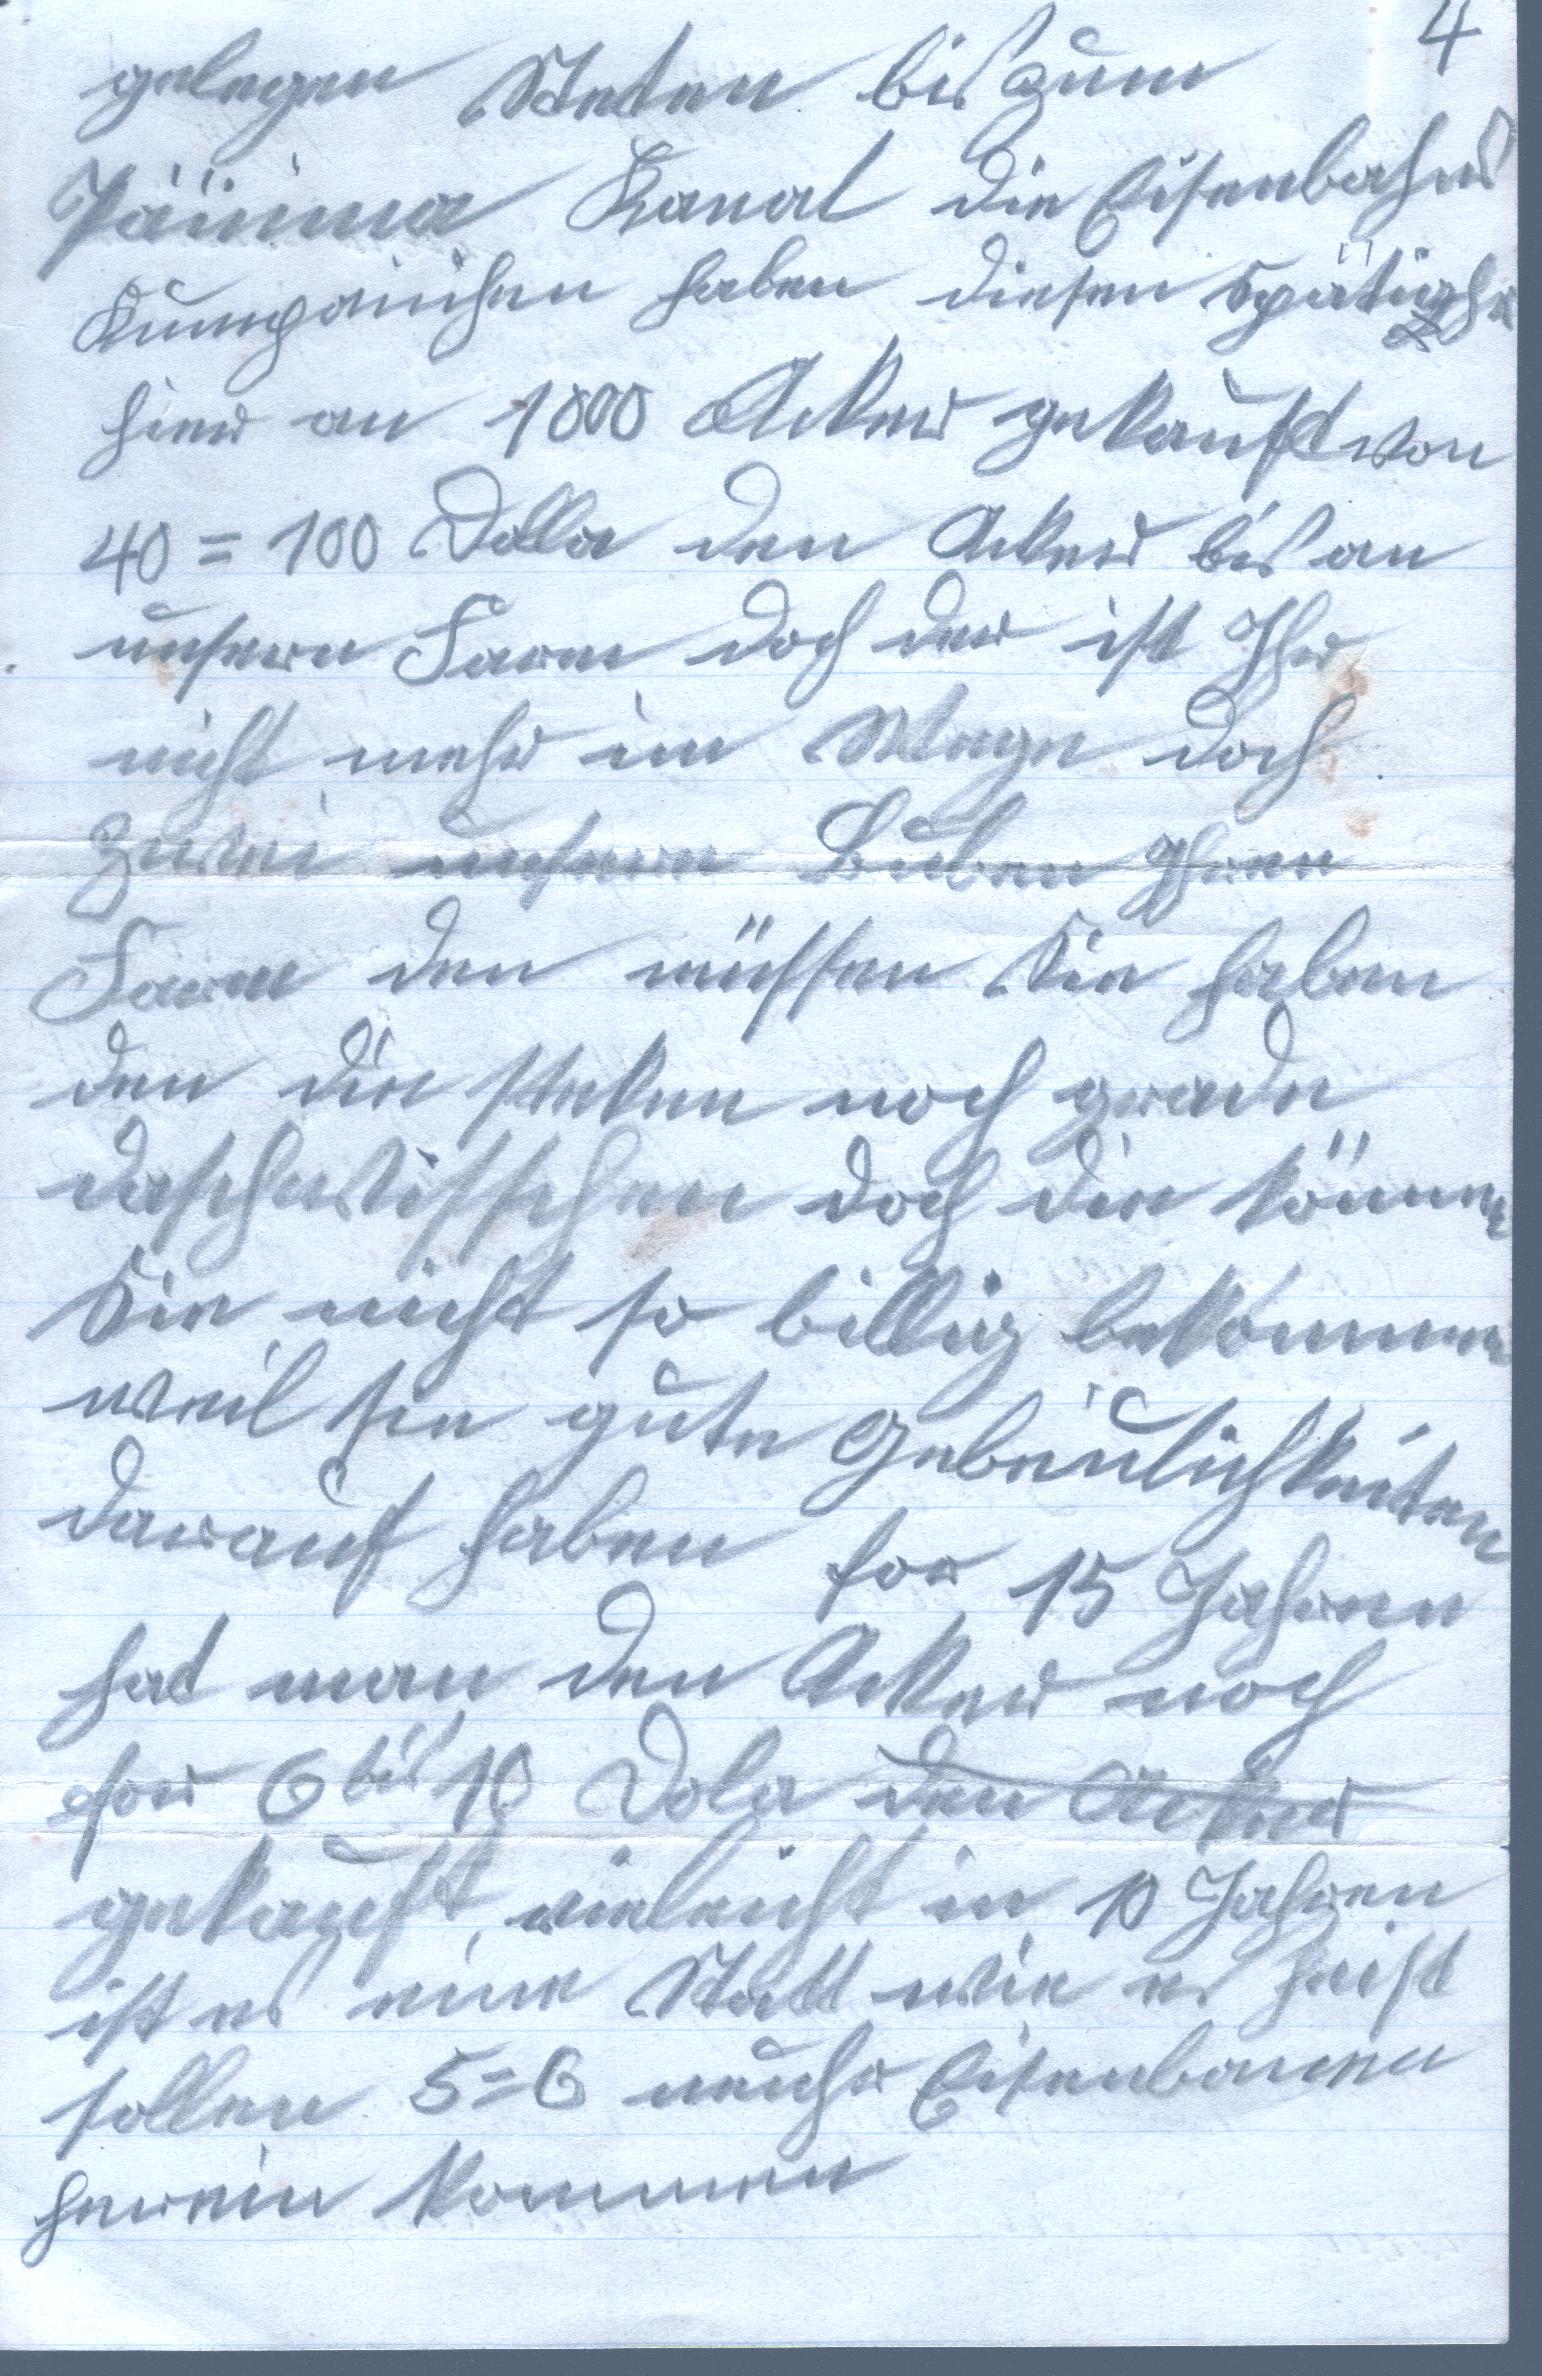 4
gelegen Steten bis zum
Pänima Kanal die Eisenbahns
Kumpanichen haben diesen Spätjahr
hier an 1000 Acker gekauft von
40 = 100 Dolla den Acker bis an
unsern Farm doch der ist Ihr
nicht mehr im Wege doch
zwei unsern Buben Ihren
Farm den müssen Sie haben
den die steken noch grade
daschwisschen doch die können
Sie nicht so billig bekommen
weil sie gute Gebeulichkeiten
darauf haben for 15 Jahren
had man den Acker noch
for 6 bis 10 Dola den Acker
gekauft, vieleicht in 10 Jahren
ist es eine Statt wie es heist
sollen 5=6 mehr Eisenbanen
herein kommen